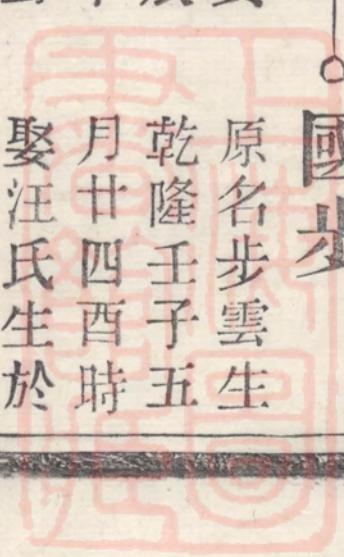 國步
原名步雲生
乾隆壬子五
月廿四酉時
娶汪氏生於